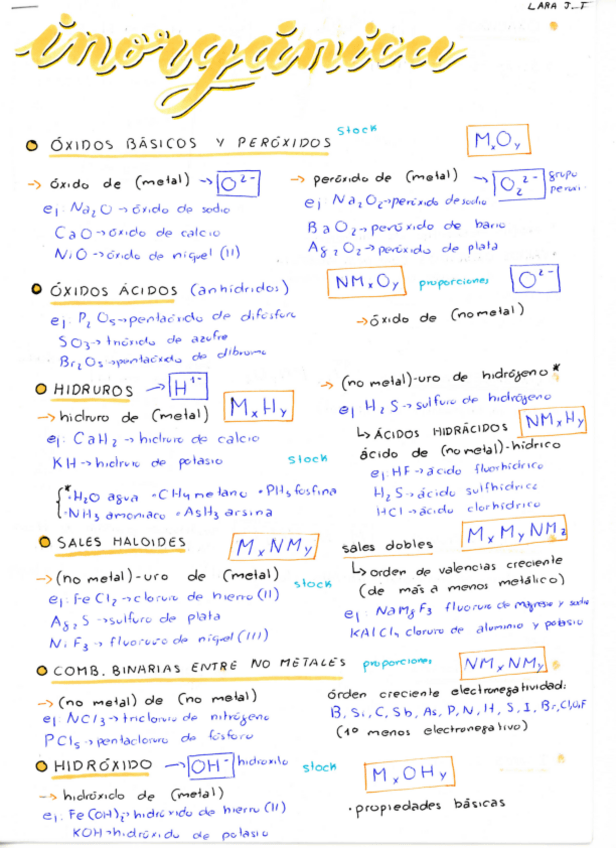 LARA J.T
inorgánica
ÓXIDOS BÁSICOS Y PERÓXIDOS stock MxOy
→ óxido de (metal) → O²⁻
ej: Na₂O → óxido de sodio
CaO → óxido de calcio
NiO → óxido de níquel (II)
→ peróxido de (metal) → O₂²⁻ grupo
ej: Na₂O₂ → peróxido de sodio
BaO₂ → peróxido de bario
Ag₂O₂ → peróxido de plata
ÓXIDOS ÁCIDOS (anhídridos) NMxOy proporciones O²⁻
ej: P₂O₅ → pentaóxido de difósforo
SO₃ → trióxido de azufre
Br₂O₅ → pentaóxido de dibromo
→ óxido de (no metal)
HIDRUROS → H¹⁻
→ hidruro de (metal) MxHy
ej: CaH₂ → hidruro de calcio
KH → hidruro de potasio stock
*H₂O agua • CH₄ metano • PH₃ fosfina
• NH₃ amoniaco • AsH₃ arsina
→ (no metal)-uro de hidrógeno *
ej H₂S → sulfuro de hidrógeno
↳ ÁCIDOS HIDRÁCIDOS NMxHy
ácido de (no metal)-hídrico
ej: HF → ácido fluorhídrico
H₂S → ácido sulfhídrico
HCl → ácido clorhídrico
SALES HALOIDES MxNMy
→ (no metal)-uro de (metal) stock
ej: FeCl₂ → cloruro de hierro (II)
Ag₂S → sulfuro de plata
NiF₃ → fluoruro de níquel (III)
sales dobles MxMyNMz
↳ orden de valencias creciente
(de más a menos metálico)
ej: NaMgF₃ fluoruro de magnesio y sodio
KAlCl₄ cloruro de aluminio y potasio
COMB. BINARIAS ENTRE NO METALES proporciones NMxNMy
→ (no metal) de (no metal)
ej: NCl3 → tricloruro de nitrógeno
PCl₅ → pentacloruro de fósforo
órden creciente electronegatividad:
B, Si, C, Sb, As, P, N, H, S, I, Br, Cl, O, F
(1º menos electronegativo)
HIDRÓXIDO → OH⁻ hidroxilo stock MxOHy
→ hidróxido de (metal)
ej: Fe(OH)₂ → hidróxido de hierro (II)
KOH → hidróxido de potasio
• propiedades básicas